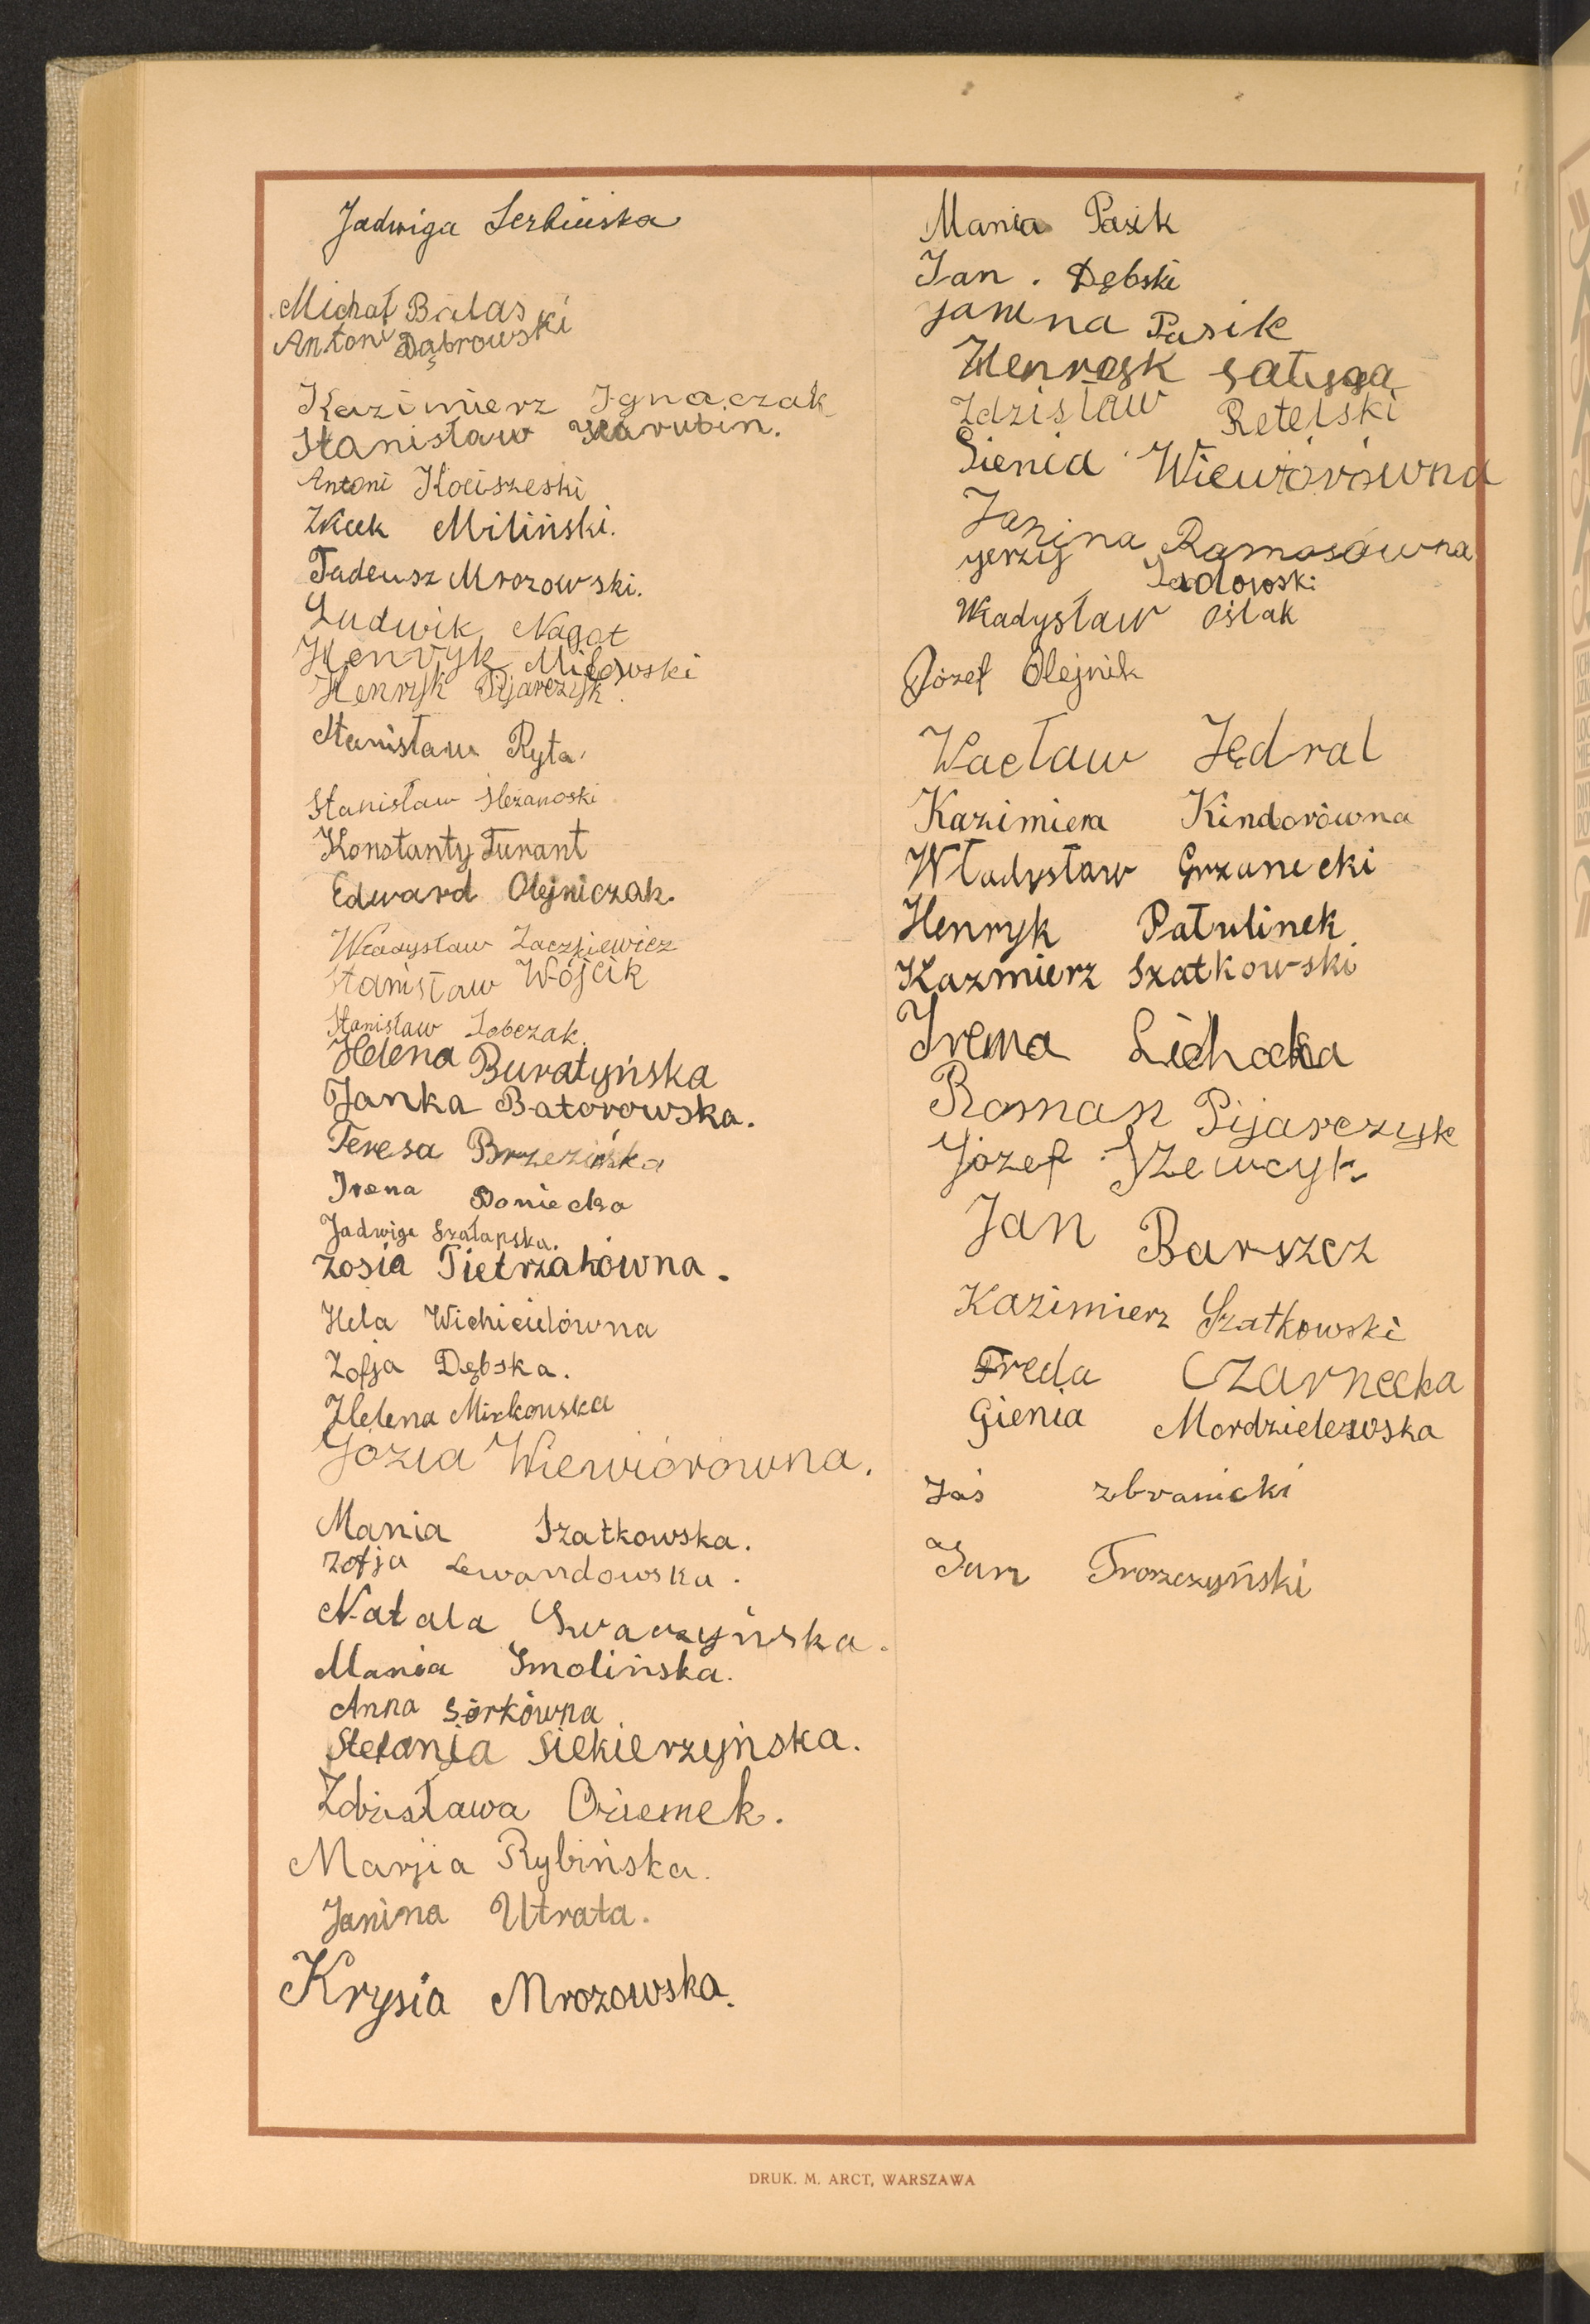 Jadwiga Serbińska
Michał Balas
Antoni Dąbrowski
Kazimierz Ignaczak
Stanisław Karubin.
Antoni Kociszeski
Miliński.
Tadeusz Mrozowski.
Ludwik Nagot
Henryk Milowski
Henryk Pijarczyk.
Stanisław Ryta
Stanisław
Konstanty Turant
Edward Olejniczak.
Władysław Zaczkiewicz
Stanisław Wójcik
Stanisław Sobczak.
Helena Buratyńska
Janka Batorowska.
Teresa Brzezińska
Irena Doniecka
Jadwiga Szałapska.
Zosia Pietrzakówna.
Hela Wichiciulówna
Zofja Dębska.
Helena Mirkowska
Józia Wiewiórówna.
Mania Szatkowska.
Zofja Lewandowska.
Natala Swaczyńska.
Mania Smolińska.
Anna Sórkówna
Stefanja Siekierzyńska.
Zdzisława Oziemek.
Marjia Rybińska.
Janina Utrata.
Krysia Mrozowska.
Mania Pasik
Jan. Dębski
Janina Pasik
Henryk Saługa
Zdzisław Retelski
Gienia Wiewiórówna
Janina Ramosówna
Jerzy Sadowski
Władysław Oślak
Józef Olejnik
Wacław Jędral
Kazimiera Kindorówna
Władysław Grzanecki
Henryk Patulinek
Kazmierz Szatkowski
Irena Lichocka
Roman Pijarczyk
Józef Szewcyk
Jan Barszcz
Kazimierz Szatkowski
Freda Czarnecka
Gienia Mordzielewska
Jaś Zbranicki
Jan Troszczyński
DRUK. M. ARCT, WARSZAWA